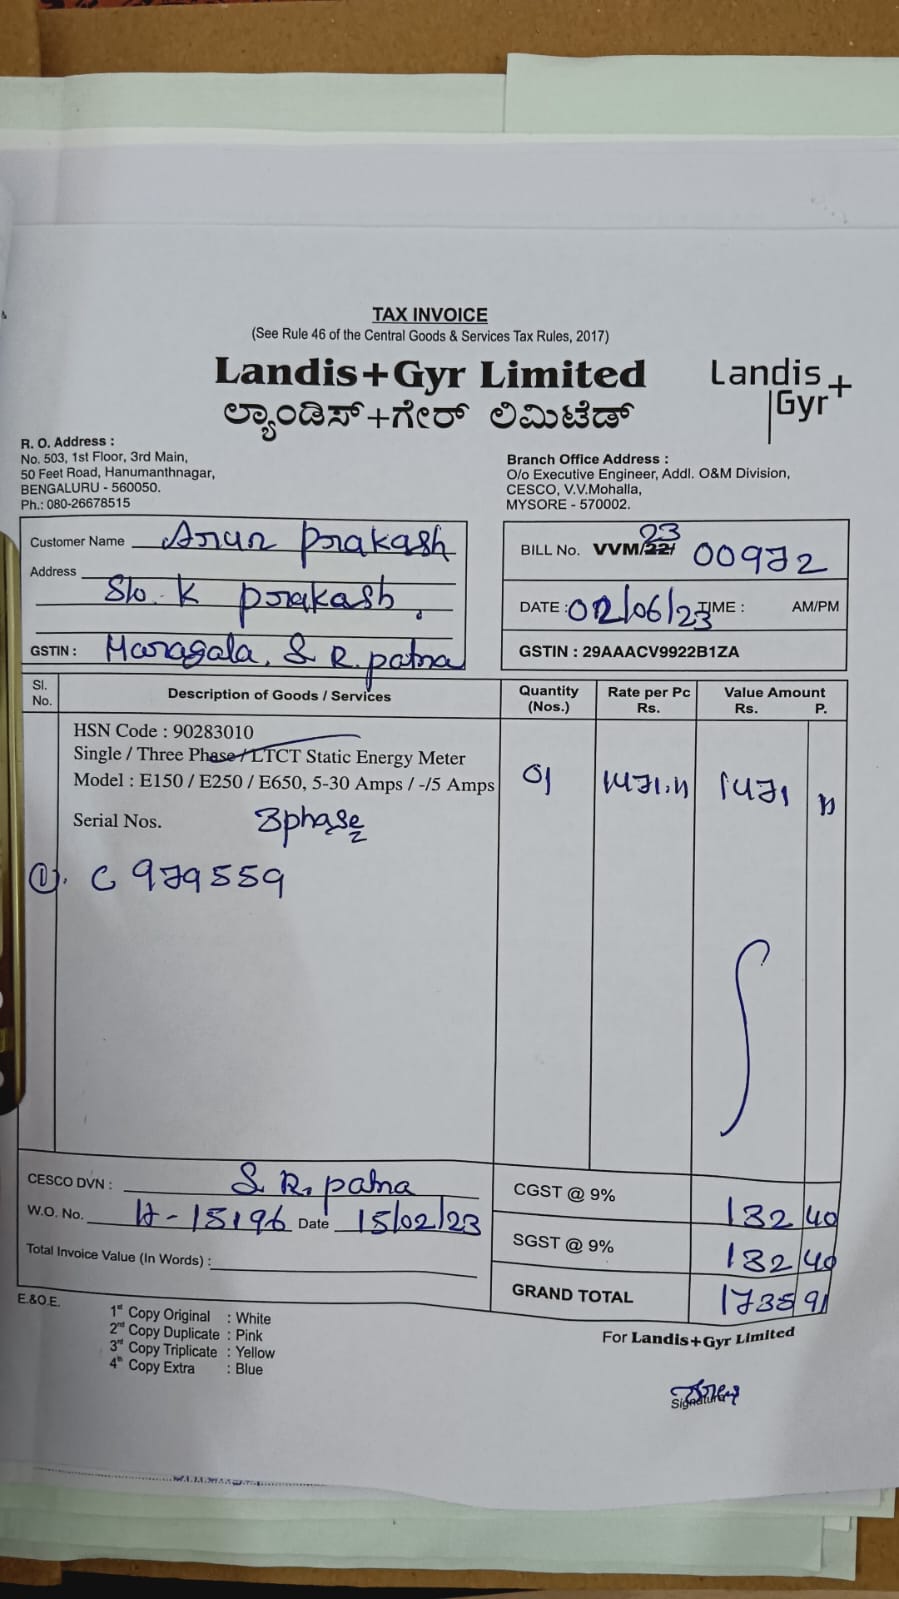 TAX INVOICE
(See Rule 46 of the Central Goods & Services Tax Rules, 2017)
Landis+Gyr Limited
ಲ್ಯಾಂಡಿಸ್+ಗೇರ್ ಲಿಮಿಟೆಡ್
Landis
Gyr+
R. O. Address :
No. 503, 1st Floor, 3rd Main,
50 Feet Road, Hanumanthnagar,
BENGALURU - 560050.
Ph.: 080-26678515
Branch Office Address :
O/o Executive Engineer, Addl. O&M Division,
CESCO, V.V.Mohalla,
MYSORE - 570002.
Customer Name Arun Prakash
Address
S/o. K Prakash.
GSTIN : Maragala, S R. patna
23
BILL No. VVM/22/ 00972
DATE : 02/06/23 TIME : AM/PM
GSTIN : 29AAACV9922B1ZA
Sl. No. Description of Goods / Services Quantity (Nos.) Rate per Pc Rs. Value Amount Rs. P.
HSN Code : 90283010
Single / Three Phase / LTCT Static Energy Meter
Model : E150 / E250 / E650, 5-30 Amps / -/5 Amps 01 1471.11 1471 11
Serial Nos. 3phase
①. C 979559
CESCO DVN : S. R. patna
W.O. No. H-15196 Date 15/02/23
Total Invoice Value (In Words) :
CGST @ 9% 132 40
SGST @ 9% 132 40
GRAND TOTAL 1735 91
E.&O.E.
1st Copy Original : White
2nd Copy Duplicate : Pink
3rd Copy Triplicate : Yellow
4th Copy Extra : Blue
For Landis+Gyr Limited
Signature